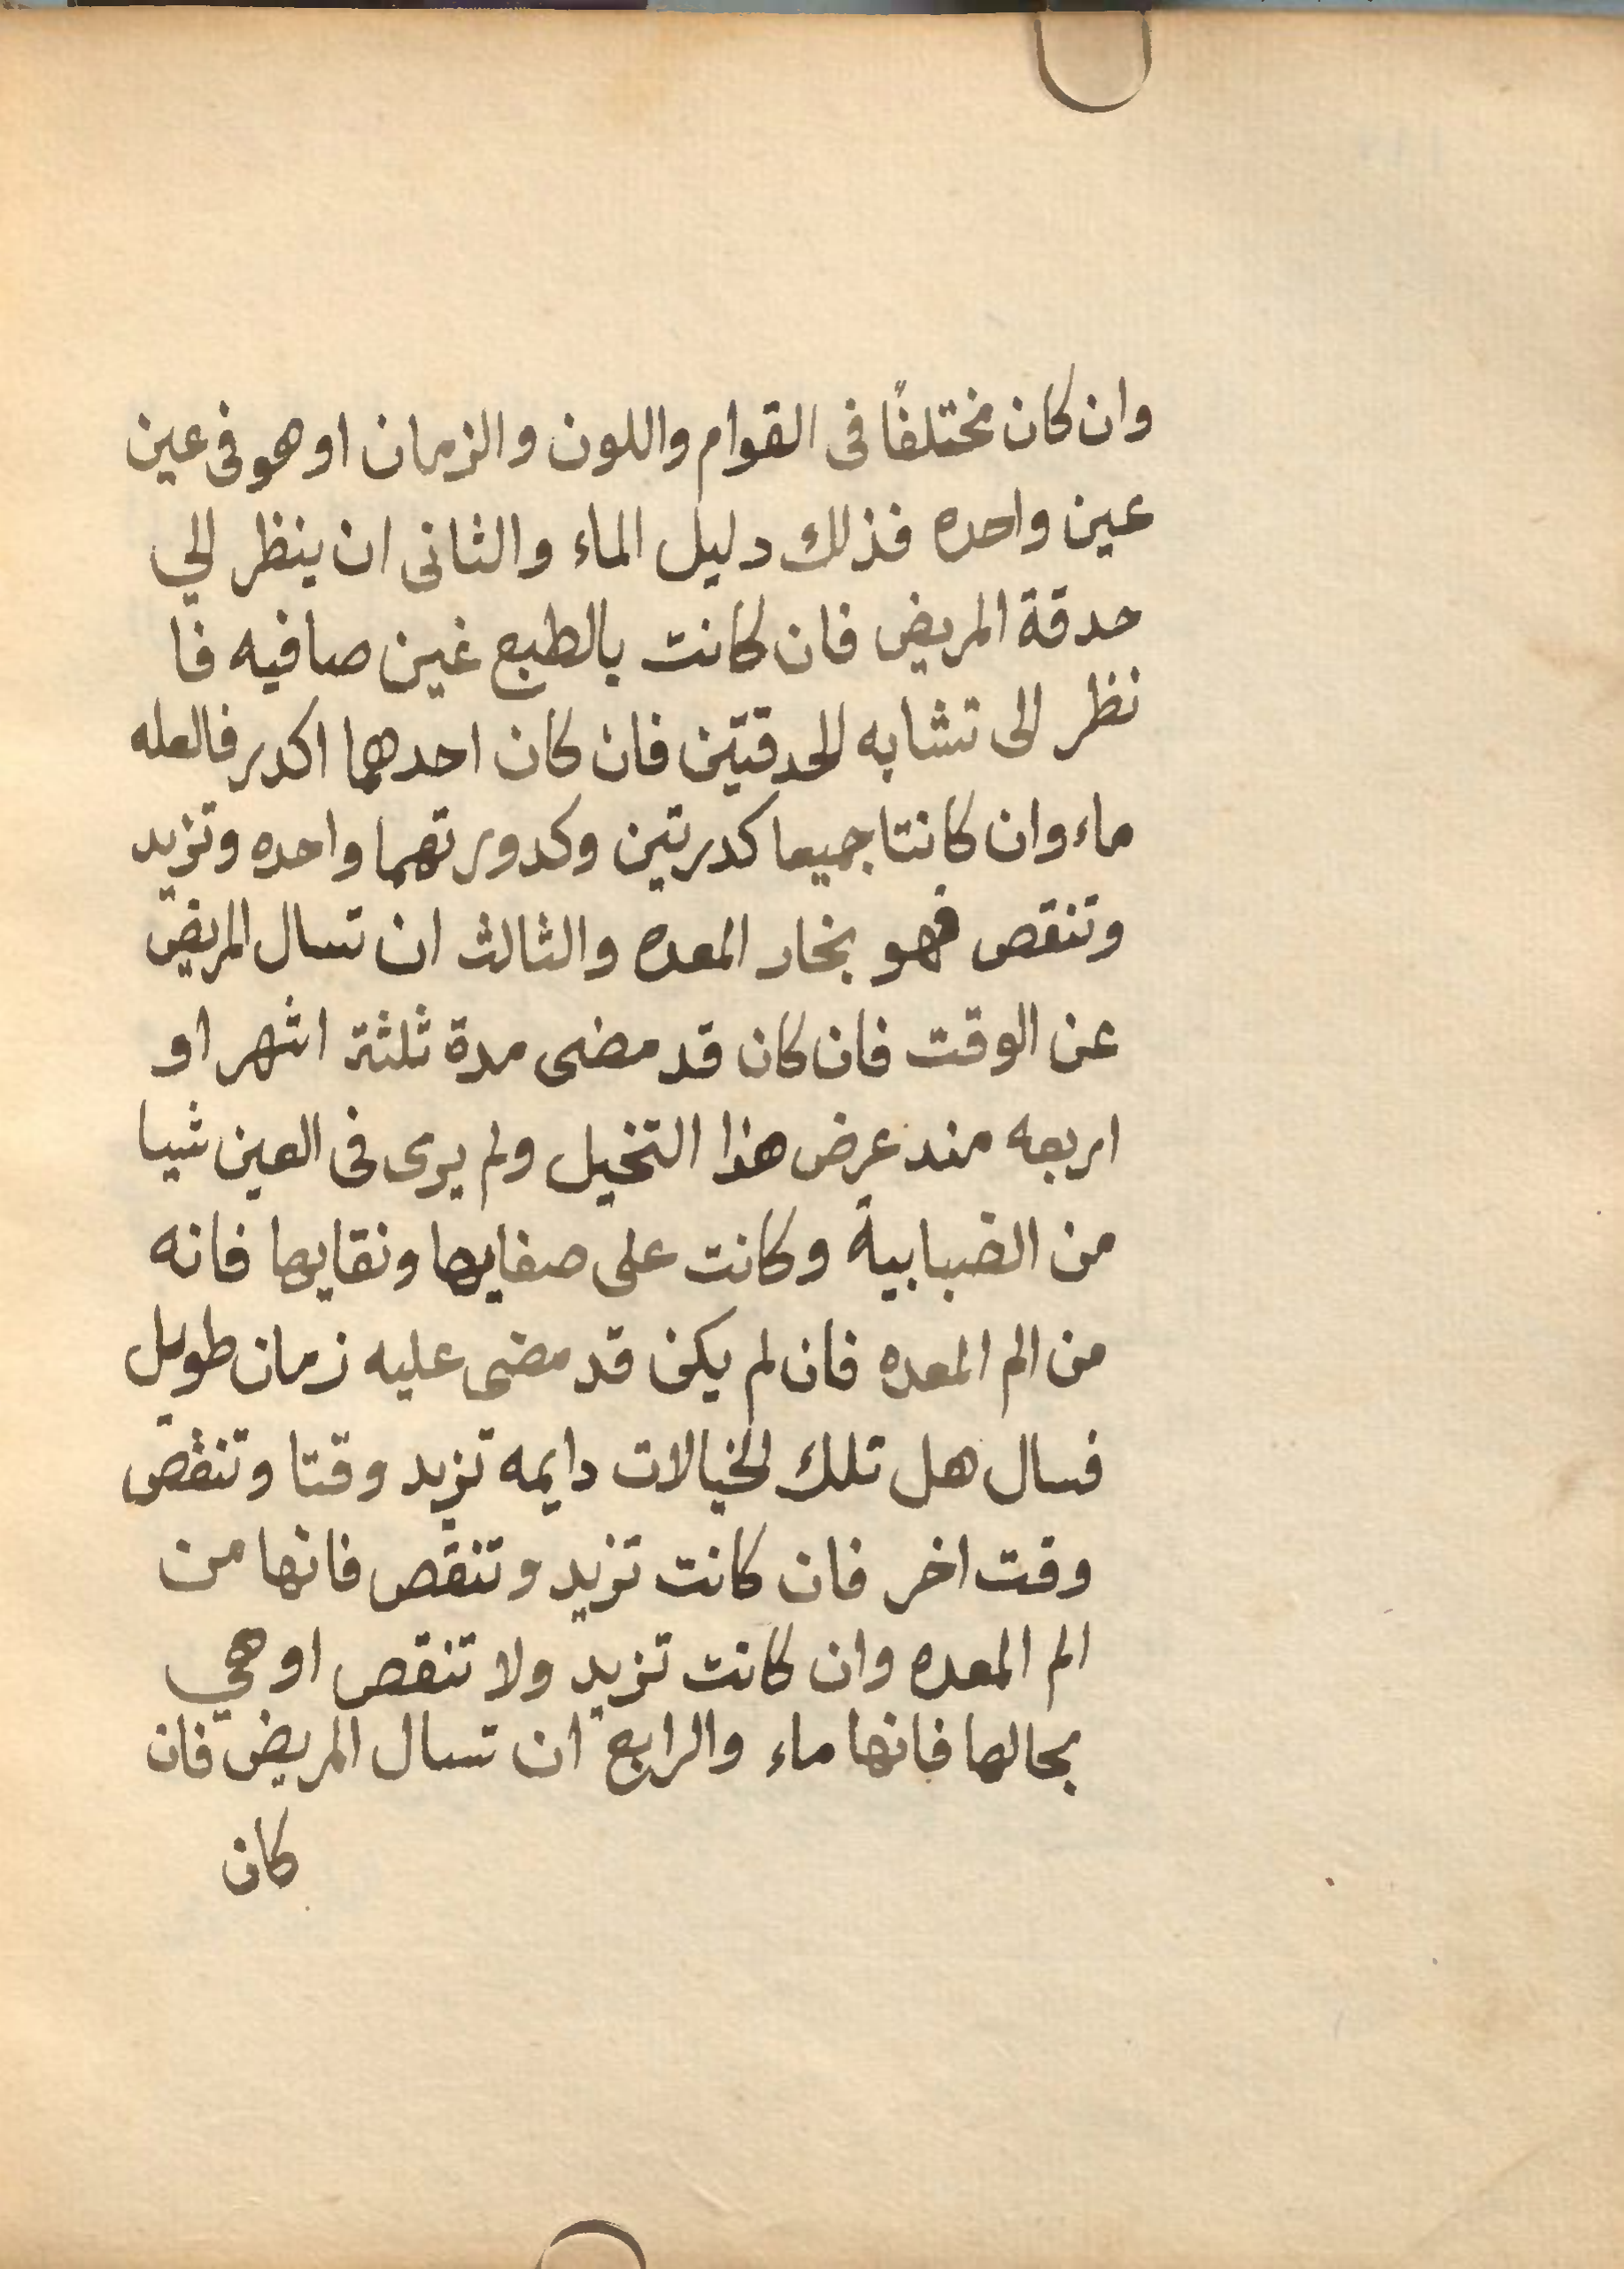 وان كان مختلفًا فى القوام واللون والزمان او هو فى عين
عين واحده فذلك دليل الماء والثانى ان ينظر الي
حدقة المريض فان كانت بالطبع غين صافيه فا
نظر الى تشابه الحدقتين فان كان احدهما اكدر فالعله
ماء وان كانتا جميعا كدرتين وكدورتهما واحده وتزيد
وتنقص فهو بخار المعده والثالث ان تسال المريض
عن الوقت فان كان قد مضى مدة ثلثة اشهر او
اربعه مند عرض هذا التخيل ولم يرى فى العين شيا
من الضبابية وكانت على صفايها ونقايها فانه
من الم المعده فان لم يكن قد مضى عليه زمان طويل
فسال هل تلك الخيالات دايمه تزيد وقتا وتنقص
وقت اخر فان كانت تزيد وتنقص فانها من
الم المعده وان كانت تزيد ولا تنقص او هي
بحالها فانها ماء والرابع ان تسال المريض فان
كان